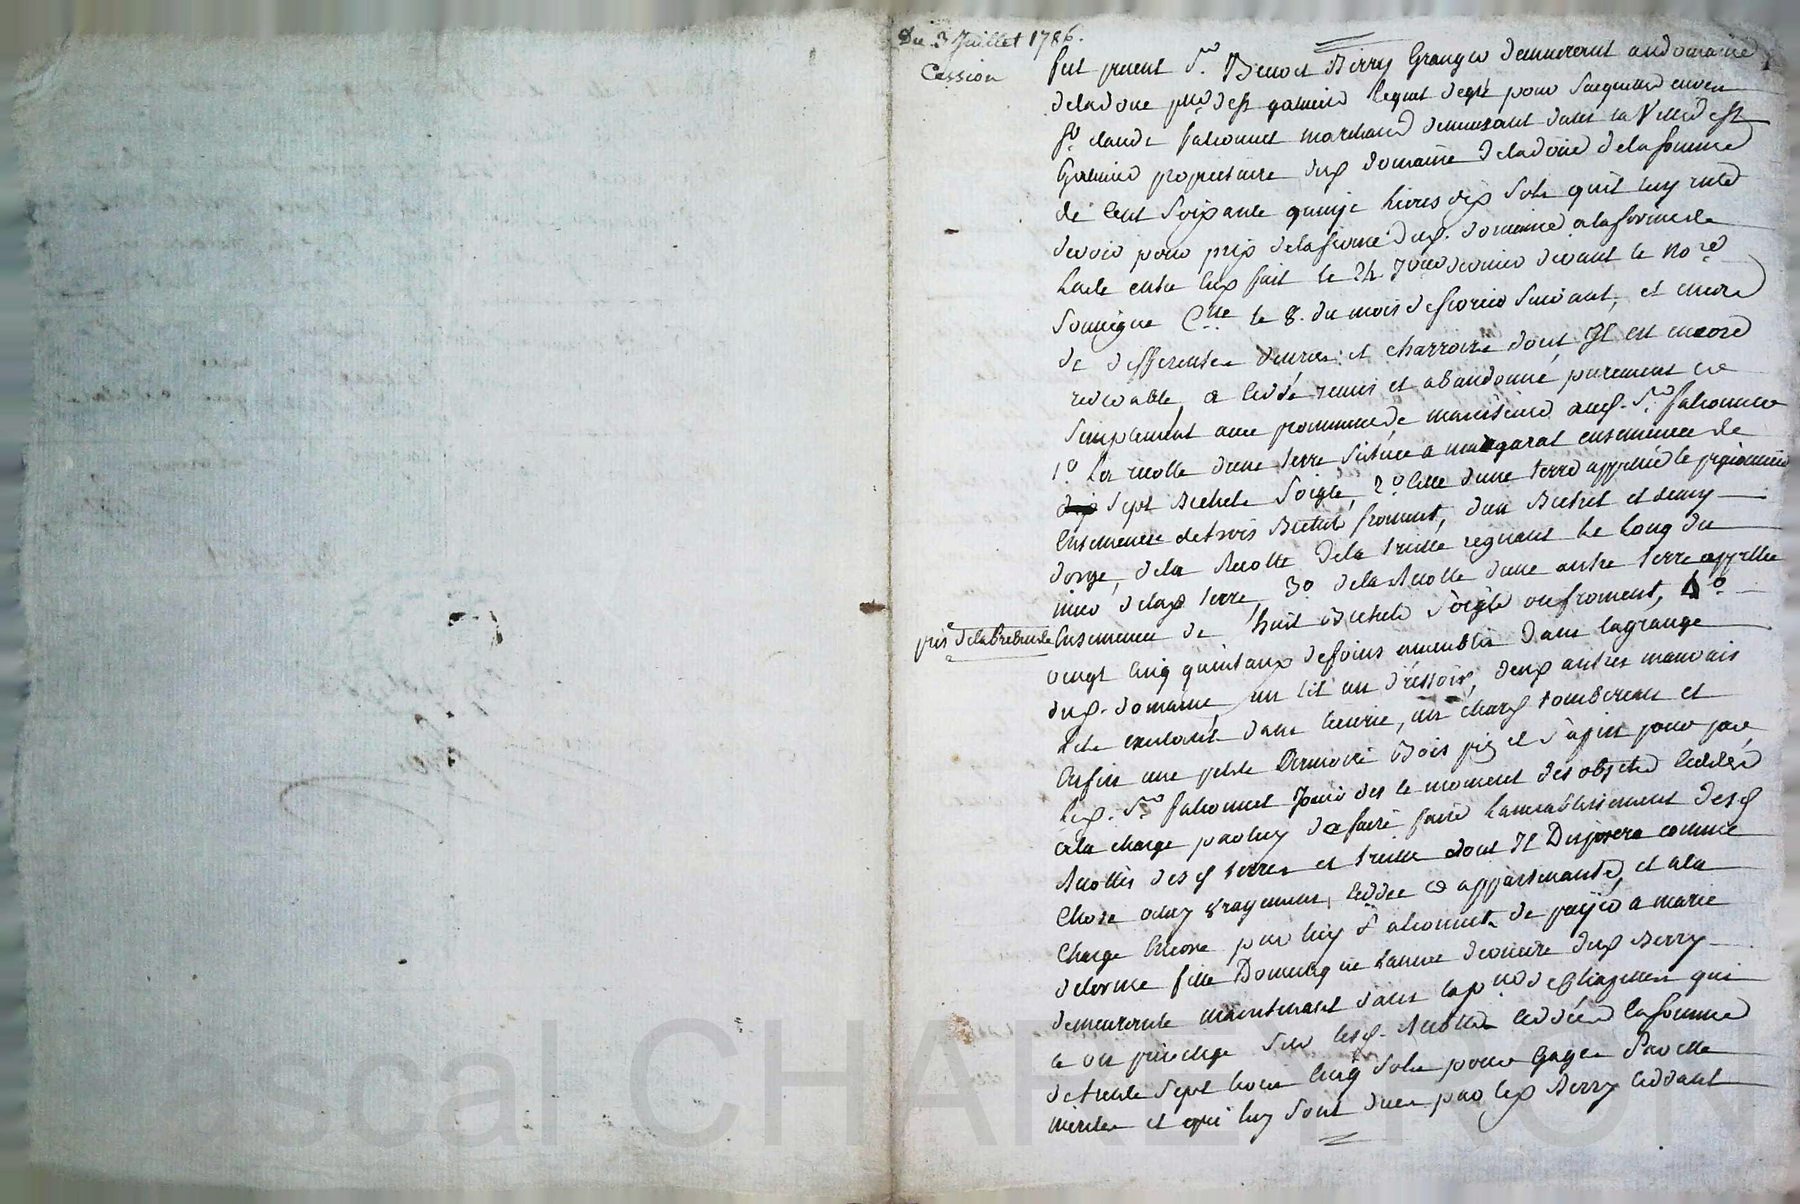 Du 3 Juillet 1786.
Cession
fut present Sr. Benoit Berry Granger demeurant au domaine
deladoue de st galmier lequel de gré pour s'acquitter envers
Sr. claude falconnet marchand demeurant dans la Ville de st
Galmier proprietaire dud domaine deladoüe dela somme
de Cent Soixante quinze Livres dix Sols qu'il luy reste
devoir pour prix dela ferme dud. domaine ala forme de
Lacte entre eux fait le 24 dernier devant le nore
Soussigne Clle le 8. du mois de fevrier Suivant, et encore
de differentes denrées et charrois dont Il est encore
redevable, a Ceddé remis et abandonné purement et
Simplement avec promesse de maintenir aud. Sr. falconnet
1o La recolte d'une terre Scituée a margarat ensemencée de
Sept Bichets Soigle, 2o Celle d'une terre appellée le pigeonnier
Ensemencée de trois Bichets froment, d'un Bichet et demy
d'orge, dela Recolte dela treille regnant le Long du
mur delad terre, 3o dela Recolte d'une autre terre appellée
Ensemencée de huit Bichets Soigle ou froment, 4o
vingt Cinq quintaux de foins dans lagrange
dud. domaine un lit un dressoir, deux autres mauvais
Lits dans Lecurie, un char tombereau et
Enfin une petite Armoire Bois pin et Sapin pour par
Led. Sr. falconnet Jouir des le moment des objets Ceddés
ala charge par luy de faire faire des d
Recoltes des d terres et treille dont Il Disposera comme
Chose a luy vrayement Ceddée et appartenante, et ala
charge Encore par luy falconnet de payer a marie
delorme fille Domestique dud Berry
demeurante maintenant dans la de Chazelles qui
a un privilege Sur lesd. Recoltes Ceddées la somme
de trente Sept livres Cinq Sols pour Gages
merités et qui luy Sont dues par led Berry Ceddant
Pascal CHAREYRON